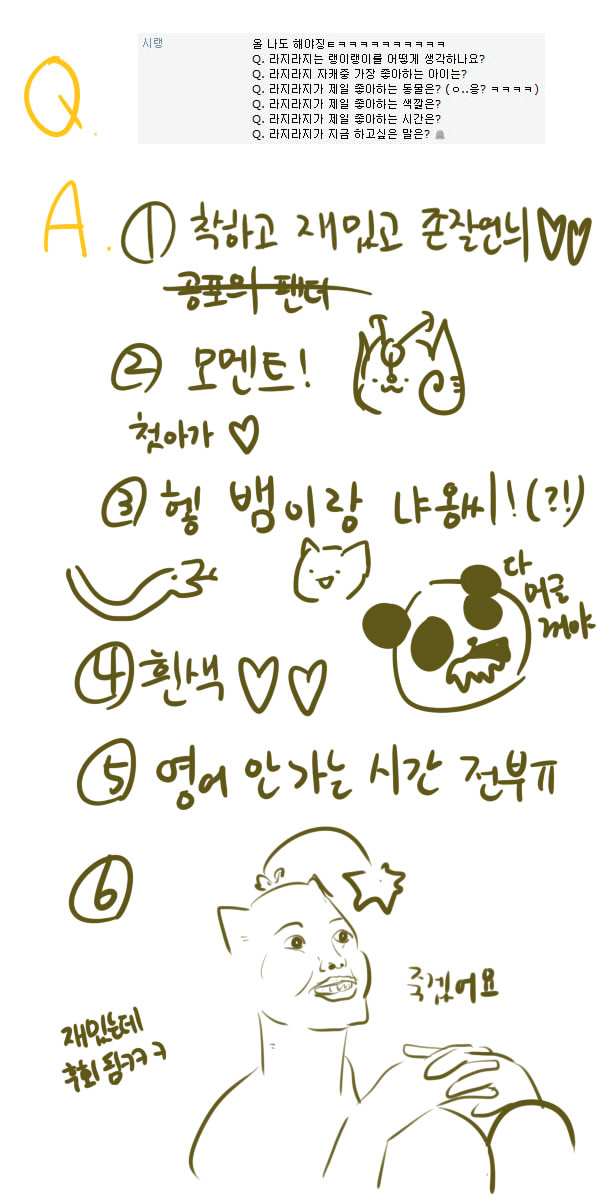 Q.
시랭
올 나도 해야징ㅌㅋㅋㅋㅋㅋㅋㅋㅋㅋㅋ
Q. 라지라지는 랭이랭이를 어떻게 생각하나요?
Q. 라지라지 자캐중 가장 좋아하는 아이는?
Q. 라지라지가 제일 좋아하는 동물은? (ㅇ..응? ㅋㅋㅋㅋ)
Q. 라지라지가 제일 좋아하는 색깔은?
Q. 라지라지가 제일 좋아하는 시간은?
Q. 라지라지가 지금 하고싶은 말은?
A.
① 착하고 재밌고 존잘언늬♡♡
공포의 팬터
② 모멘트!
첫아가 ♡
③ 헿 뱀이랑 냐옹씨!(?!)
다
머글
꺼야
④ 흰색♡♡
⑤ 영어 안가는 시간 전부ㅠ
⑥
죽겠어요
재밌는데
후회됨ㅋㅋㅋ